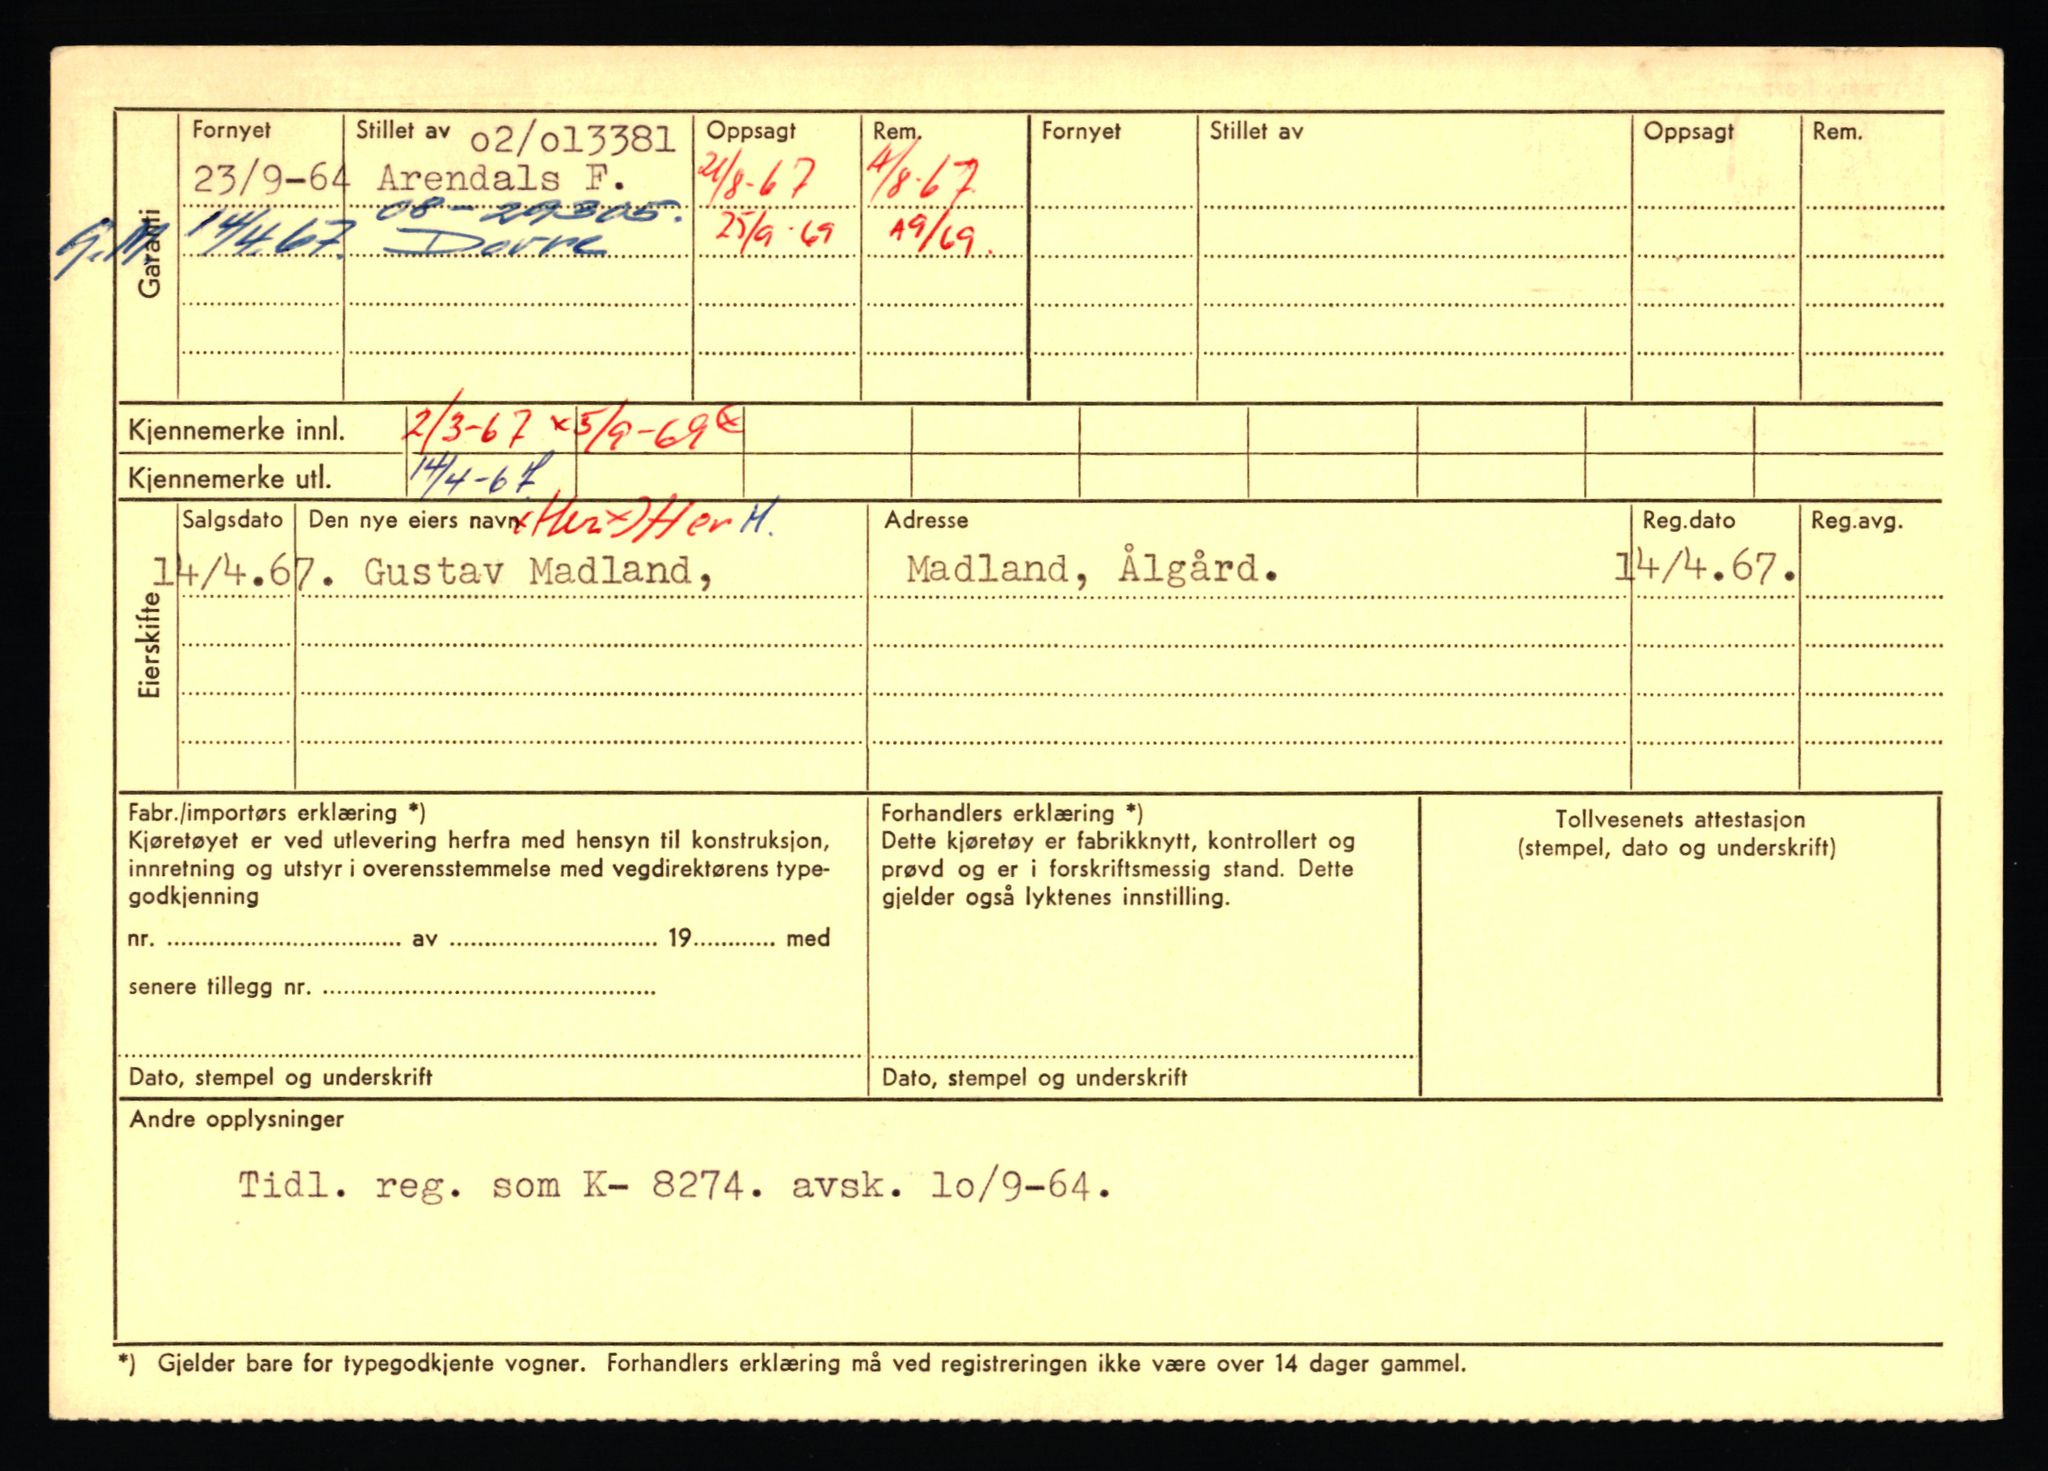 Garanti
Fornyet Stillet av o2/o13381 Oppsagt Rem. Fornyet Stillet av Oppsagt Rem.
23/9-64 Arendals F. 21/8-67 A/8-67
G.M. 14/4.67. 08-29305. 25/9-69 A9/69.
Dovre
Kjennemerke innl. 2/3-67 x 5/9-69 x
Kjennemerke utl. 14/4-67.
Eierskifte
Salgsdato Den nye eiers navn x(Her x) Her H. Adresse Reg.dato Reg.avg.
14/4.67. Gustav Madland, Madland, Ålgård. 14/4.67.
Fabr./importørs erklæring *)
Kjøretøyet er ved utlevering herfra med hensyn til konstruksjon,
innretning og utstyr i overensstemmelse med vegdirektørens type-
godkjenning
nr. ........ av ........ 19........ med
senere tillegg nr. ........
Dato, stempel og underskrift
Forhandlers erklæring *)
Dette kjøretøy er fabrikknytt, kontrollert og
prøvd og er i forskriftsmessig stand. Dette
gjelder også lyktenes innstilling.
Dato, stempel og underskrift
Tollvesenets attestasjon
(stempel, dato og underskrift)
Andre opplysninger
Tidl. reg. som K- 8274. avsk. lo/9-64.
*) Gjelder bare for typegodkjente vogner. Forhandlers erklæring må ved registreringen ikke være over 14 dager gammel.